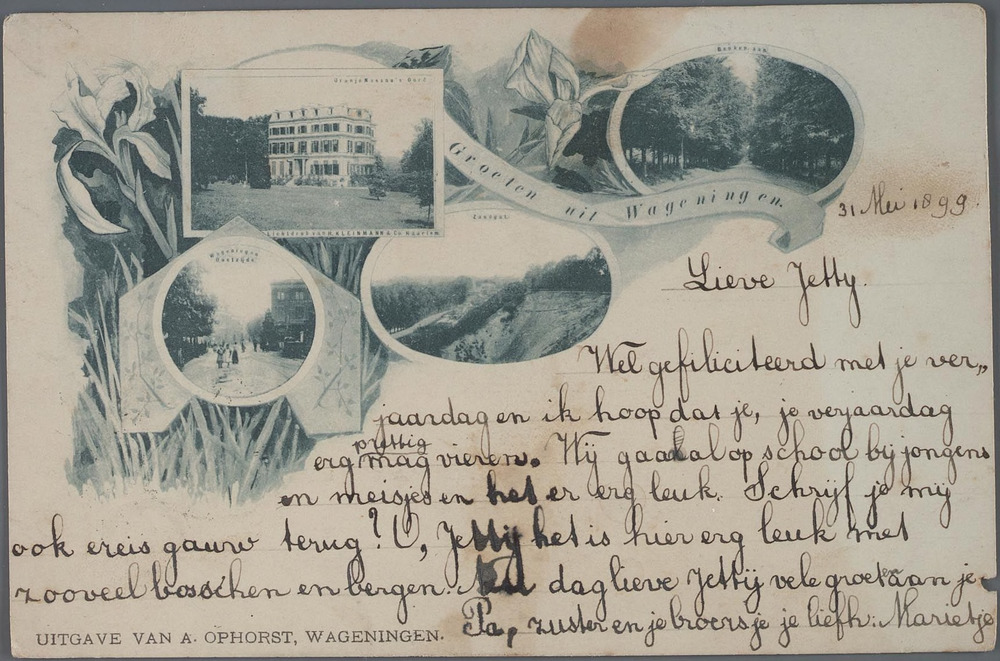 Oranje Nassau's Oord.
Lichtdruk van H. KLEINMANN & Co. Haarlem
Groeten uit Wageningen.
Zandgat.
Wageningen
31 Mei 1899.
Lieve Jetty.
Wel gefiliciteerd met je ver„
jaardag en ik hoop dat je, je verjaardag
prettig
erg mag vieren. Wij gaan al op school bij jongens
en meisjes en het er erg leuk. Schrijf je mij
ook ereis gauw terug? O, Jettij het is hier erg leuk met
zooveel bosschen en bergen. Nu dag lieve Jettij vele groeten aan je
Pa, zuster en je broersje je liefh: Marietje
UITGAVE VAN A. OPHORST, WAGENINGEN.